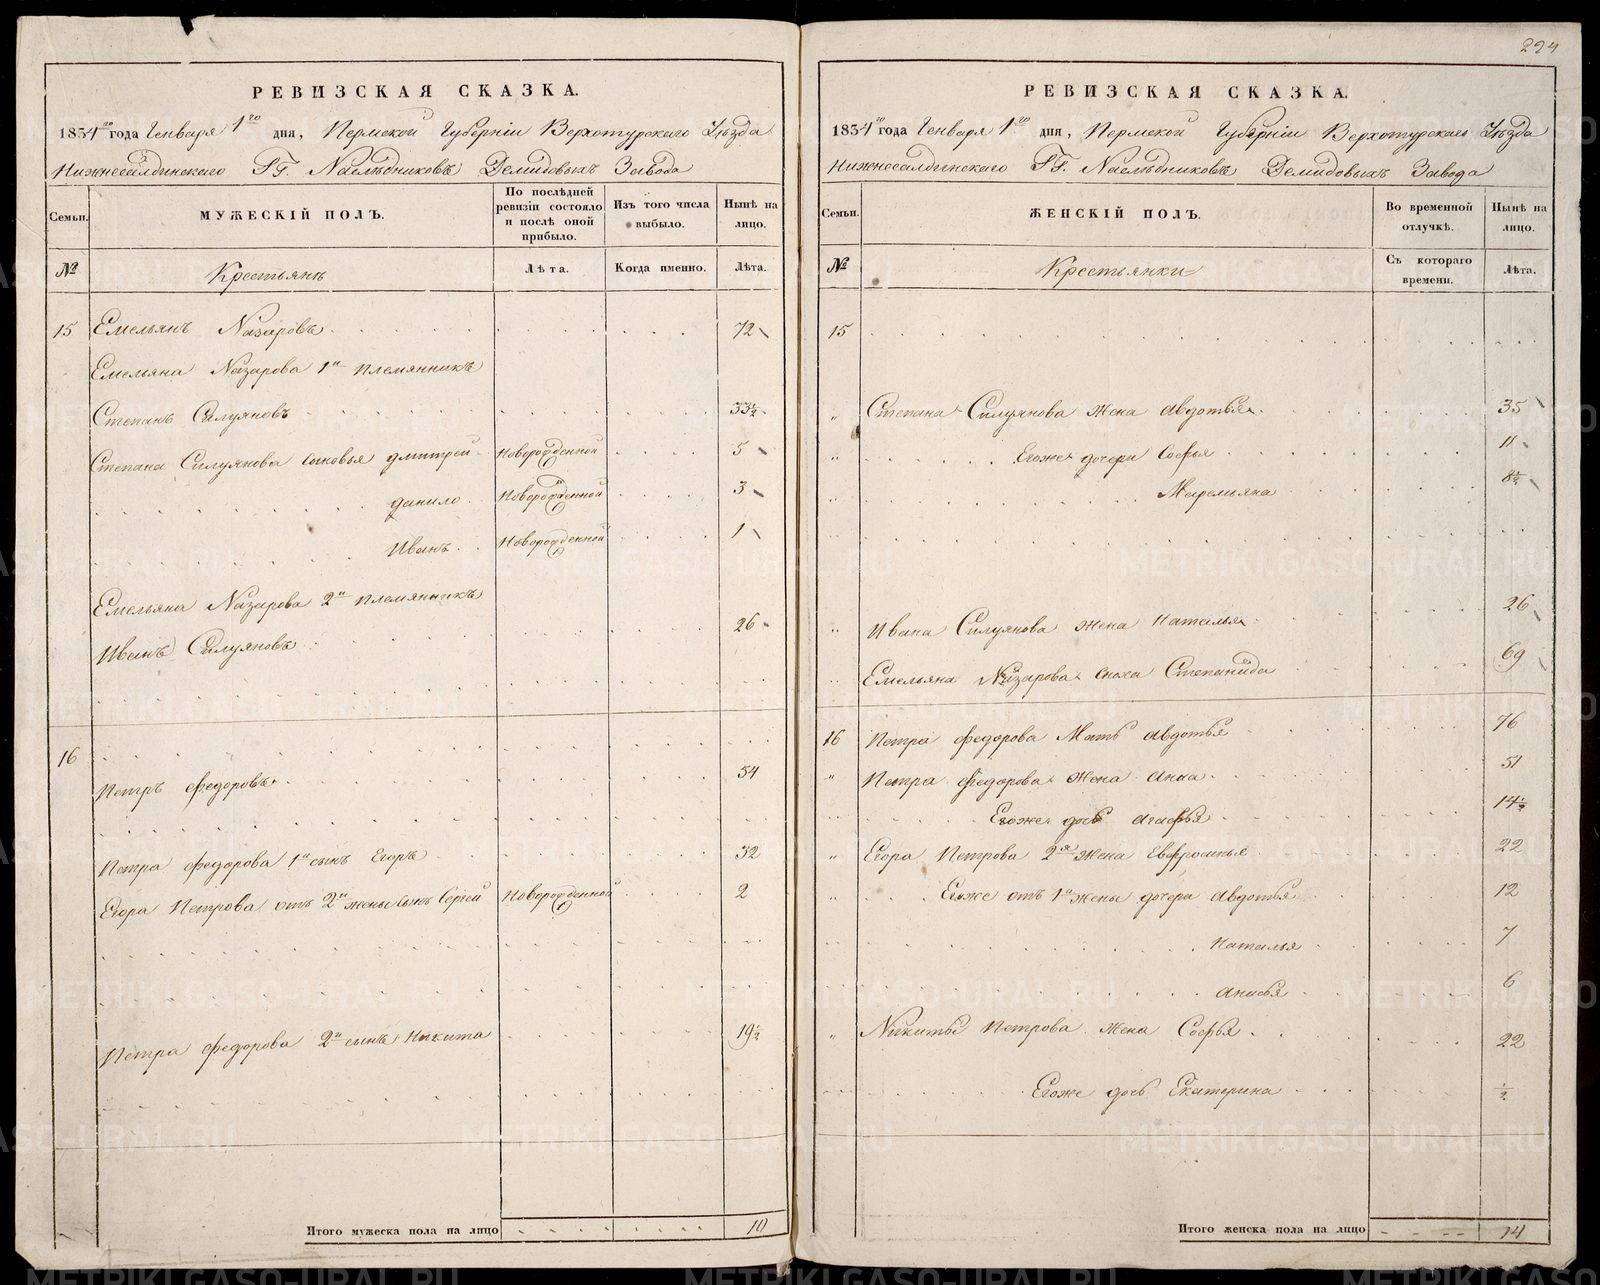 РЕВИЗСКАЯ СКАЗКА.
1834го года Генваря 1го дня, Пермской Губернiи Верхотурского Уѣзда
Нижнесалдинского ГГ. Наслѣдниковъ Демидовыхъ Завода
Семьи. МУЖЕСКIЙ ПОЛЪ. По послѣдней ревизiи состояло и послѣ оной прибыло. Изъ того числа выбыло. Нынѣ на лицо.
№ Крестьянъ Лѣта. Когда именно. Лѣта.
15 Емельянъ Назаровъ 72
Емельяна Назарова 1й племянникъ
Степанъ Силуяновъ 33½
Степана Силуянова сыновья Дмитрей Новорожденной 5
Данило Новорожденной 3
Иванъ Новорожденной 1
Емельяна Назарова 2й племянникъ
Иванъ Силуяновъ 26
16
Петръ Федоровъ 54
Петра Федорова 1й сынъ Егоръ 32
Егора Петрова отъ 2й жены сынъ Сергей Новорожденной 2
Петра Федорова 2й сынъ Никита 19½
Итого мужеска пола на лицо 10
294
РЕВИЗСКАЯ СКАЗКА.
1834го года Генваря 1го дня, Пермской Губернiи Верхотурского Уѣзда
Нижнесалдинского ГГ. Наслѣдниковъ Демидовыхъ Завода
Семьи. ЖЕНСКIЙ ПОЛЪ. Во временной отлучкѣ. Нынѣ на лицо.
№ Крестьянки Съ котораго времени. Лѣта.
15
" Степана Силуянова жена Авдотья 35
" Егоже дочери Софья 11
" Маремьяна 8½
" Ивана Силуянова жена Наталья 26
" Емельяна Назарова сноха Степанида 69
16 Петра Федорова Мать Авдотья 76
" Петра Федорова жена Анна 51
" Егоже дочь Агафья 14½
" Егора Петрова 2я жена Евфросинья 22
" Егоже отъ 1й жены дочери Авдотья 12
Наталья 7
Анисья 6
" Никиты Петрова жена Софья 22
Егоже дочь Екатерина ½
Итого женска пола на лицо 14
METRIKI.GASO-URAL.RU